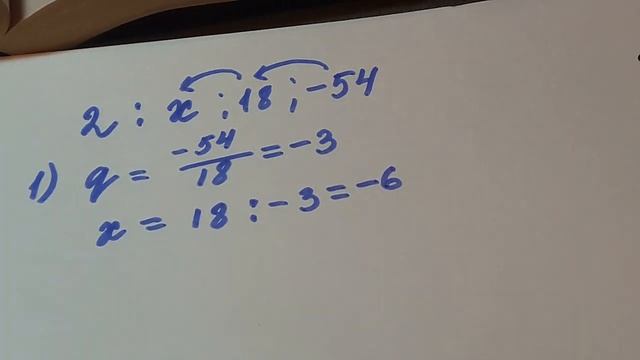 2 : x ; 18 ; -54
1) q = -54/18 = -3
x = 18 : -3 = -6